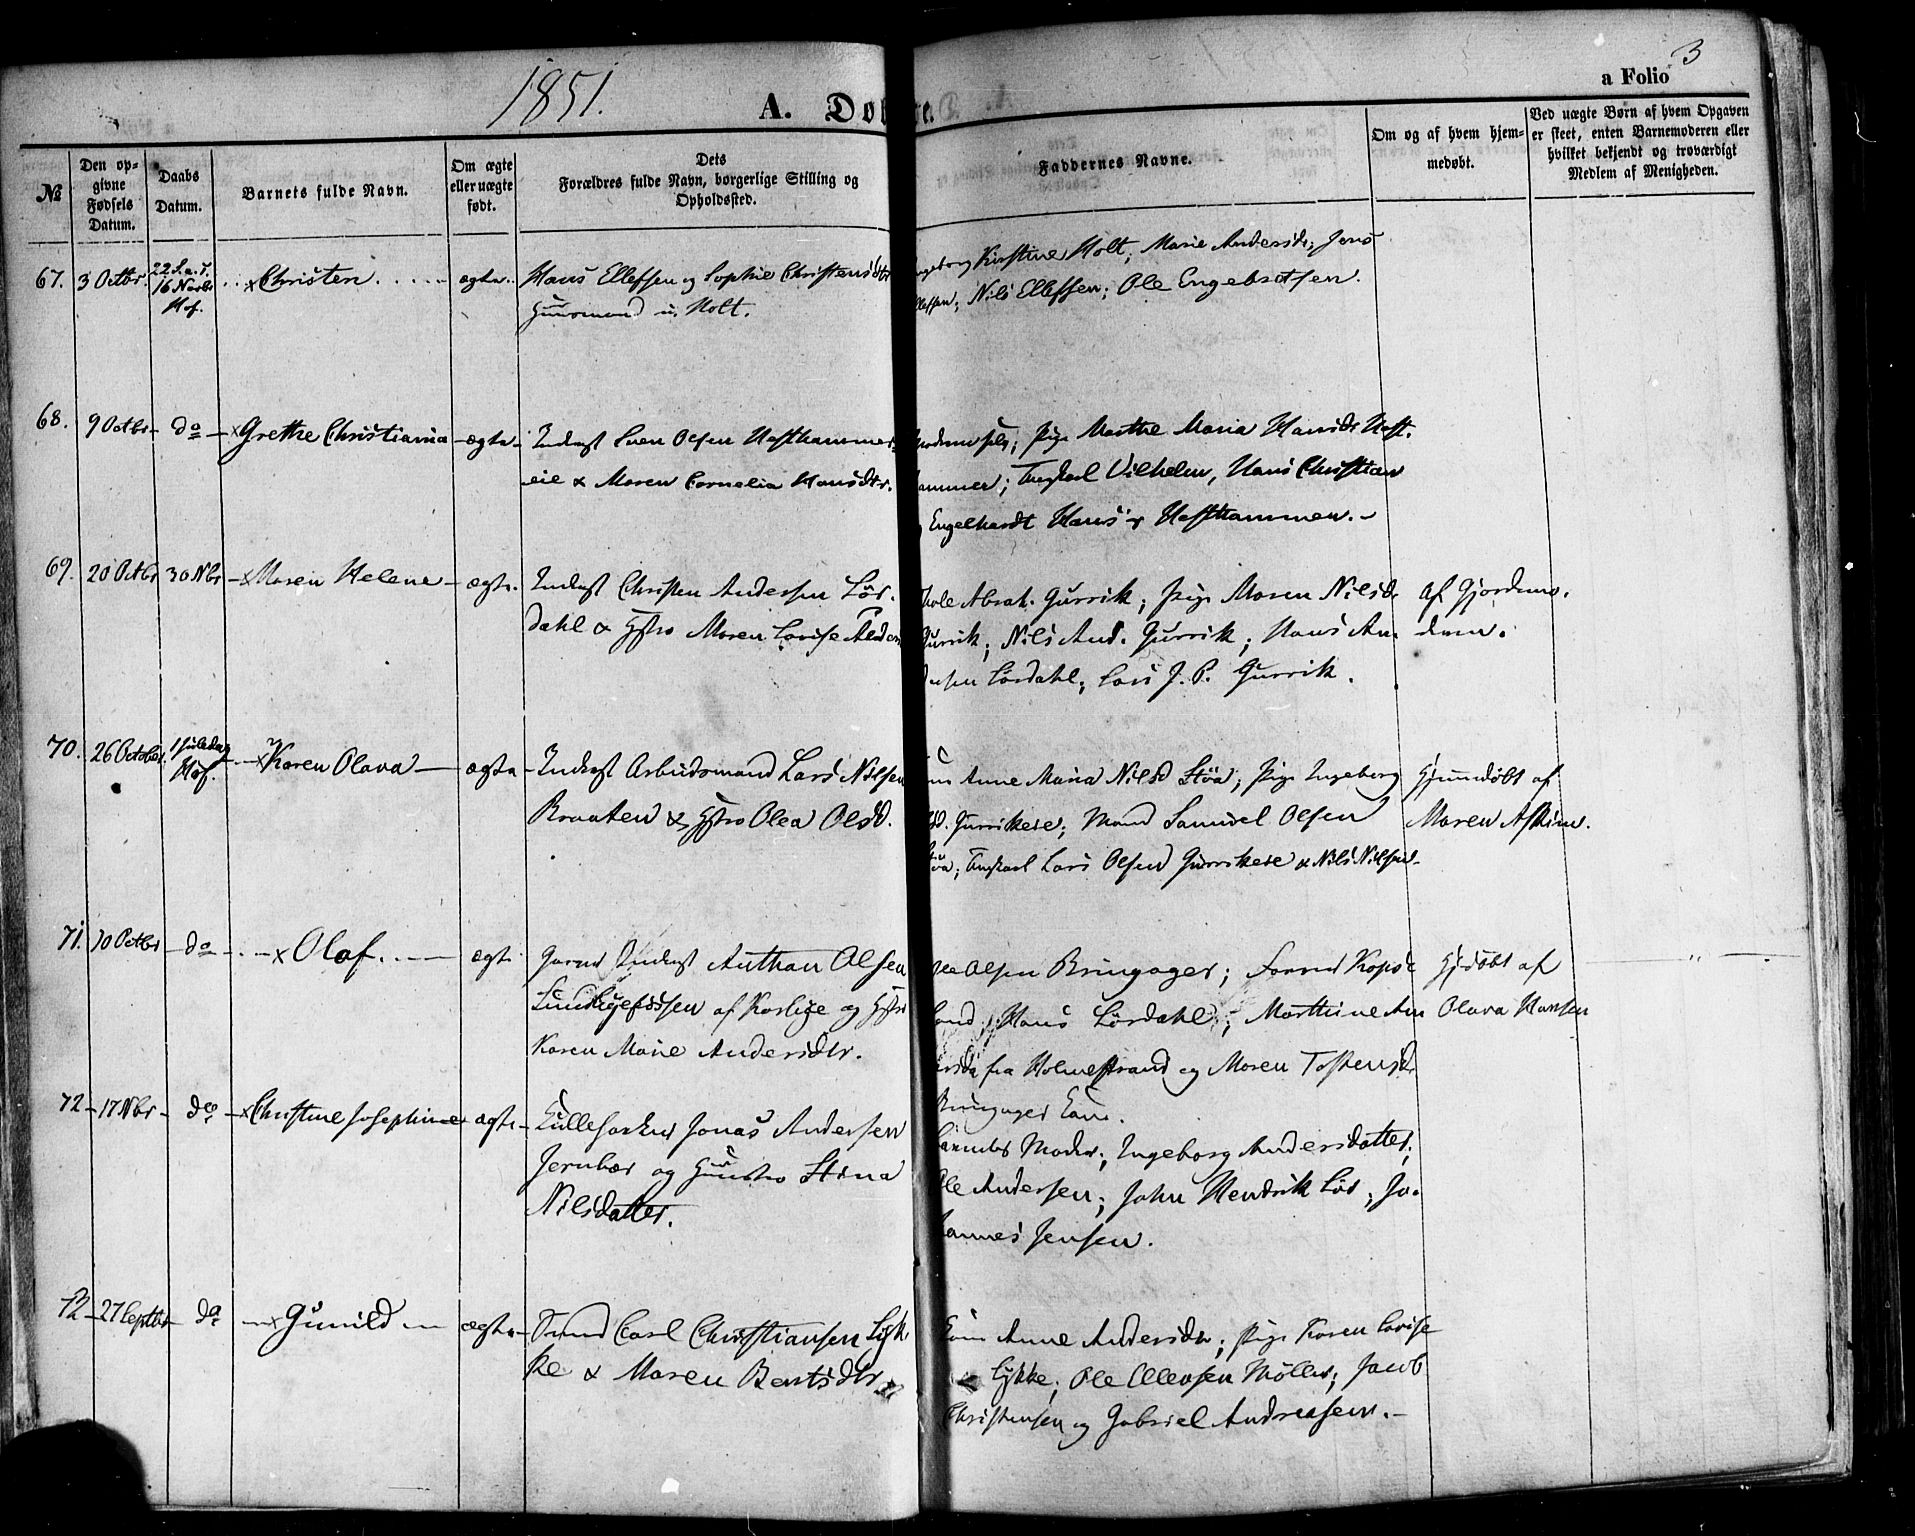 1851.
A. Døbte.
a Folio 3
№
Den op-
givne
Fødsels
Datum.
Daabs
Datum.
Barnets fulde Navn.
Om ægte
eller uægte
født.
Dets
Forældres fulde Navn, borgerlige Stilling og
Opholdssted.
Faddernes Navne.
Om og af hvem hjem-
medøbt.
Ved uægte Børn af hvem Opgaven
er skeet, enten Barnemoderen eller
hvilket bekjendt og troværdigt
Medlem af Menigheden.
67. 3 Octbr. 22 S. a. T.
16 Novbr
Hof.
x Christen
ægte.
Hans Ellefsen og Sophie Christensdtr
Huusmand u. Holt.
Ingeborg Kirstine Holt; Marie Andersdr; Jens
Ellefsen; Nils Ellefsen; Ole Engebretsen.
68. 9 Octbr - do - x Grethe Christiania - ægte -
Inderst Sven Olsen Hafthammer
eie & Maren Cornelia Hansdtr.
Moderen selv; Pige Marthe Maria Hansdr Haft-
hammer; Ungkarl Vilhelm, Hans Christian
og Engelhardt Hans's Hafthammer. -
69. 20 Octbr 30 Nbr - x Maren Helene - ægte.
Inderst Christen Andersen Lør-
dahl & Hstro Maren Lovise Ander
Abrah. Gurrik; Pige Maren Nilsdr
Gurrik; Nils And. Gurrik; Hans An-
dersen Lørdahl; Lars J. P. Gurrik.
af Gjordemo-
deren.
70. 26 October 1 Juledag
Hof.
- x Karen Olava - ægte -
Inderst Arbeidsmand Lars Nilsen
Braaten & Hstro Olea Olsd.
Anne Maria Nilsd Støa; Pige Ingeborg
Gurrikeie; Mand Samuel Olsen
Støa; Ungkarl Lars Olsen Gurrikeie & Nils Nilsen -
Hjemdøbt af
Maren Askim.
71. 10 Octbr - do - x Olaf. - ægte
Inderst Anthon Olsen
af og Hstro
Karen Marie Andersdtr.
Olsen Bringager;
Hans Lørdahl; Marthine An
dersdr fra Holmestrand og Maren Tostensdr
Bringager
Hjdøbt af
Olava Hansen
72 - 17 Nbr - do - x Christine Josephine ægte -
Jonas Andersen
Jernbær og Huustro Stina
Nilsdatter.
Barnets Moder; Ingeborg Andersdatter;
Ole Andersen; John Hendrik Lør; Jo-
hannes Jensen.
72 - 27 Septbr - do - x Gunild - ægte -
Carl Christiansen Lyk
ke & Maren Berntsdtr
Anne Andersdr; Pige Karen Lovise
Lykke; Ole Ellevsen Møller; Jacob
Christensen og Gabriel Andreasen. -